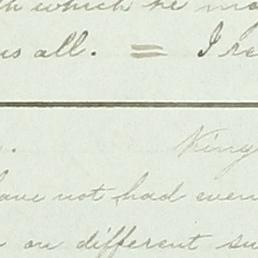 which he
us all. = I re
King
have not had even
on different su